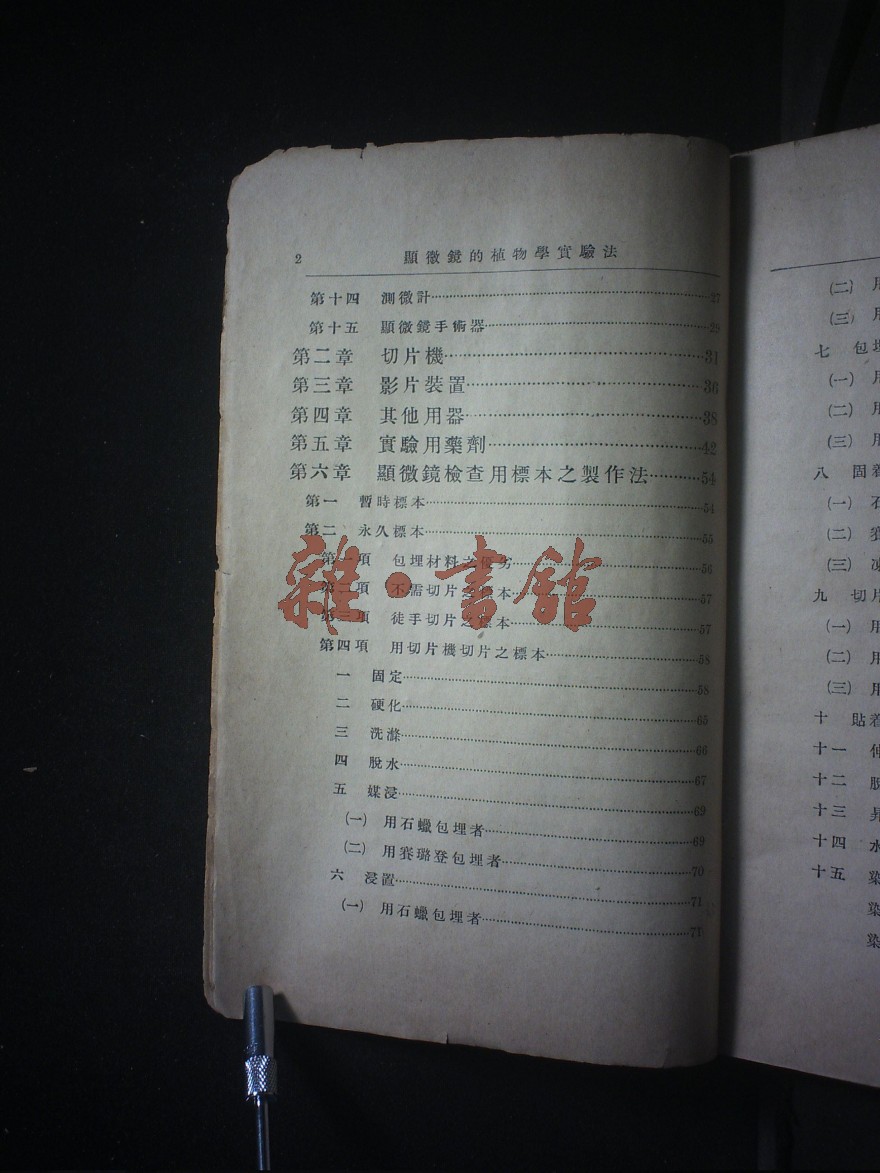 2 顯微鏡的植物學實驗法
第十四 測微計……27
第十五 顯微鏡手術器……29
第二章 切片機……31
第三章 影片裝置……36
第四章 其他用器……38
第五章 實驗用藥劑……42
第六章 顯微鏡檢查用標本之製作法……54
第一 暫時標本……54
第二 永久標本……55
第一項 包埋材料之優劣……56
第二項 不需切片之標本……57
第三項 徒手切片之標本……57
第四項 用切片機切片之標本……58
一 固定……58
二 硬化……65
三 洗滌……66
四 脫水……67
五 媒浸……69
㈠ 用石蠟包埋者……69
㈡ 用賽璐登包埋者……70
六 浸置……71
㈠ 用石蠟包埋者……71
雜·書館
㈡ 用
㈢ 用
七 包埋
㈠ 用
㈡ 用
㈢ 用
八 固着
㈠ 石
㈡ 賽
㈢ 凍
九 切片
㈠ 用
㈡ 用
㈢ 用
十 貼着
十一 伸
十二 脫
十三
十四 水
十五 染
染
染